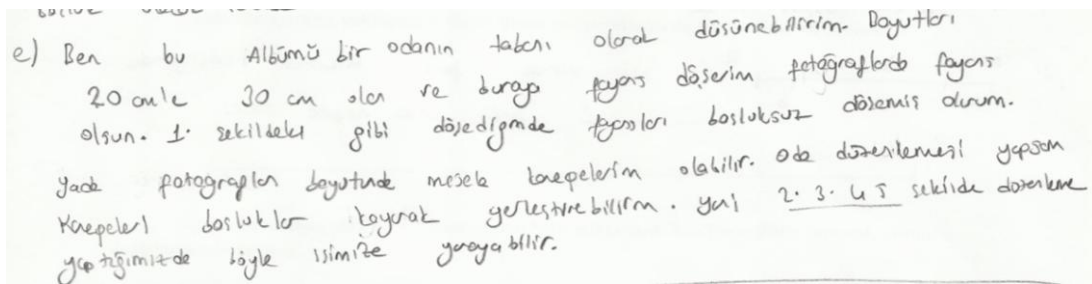 e) Ben bu Albümü bir odanın tabanı olarak düşünebilirim. Boyutları
20 cm'le 30 cm olan ve buraya fayans döşerim fotoğraflarda fayans
olsun. 1. şekildeki gibi döşediğimde fayansları boşluksuz döşemiş olurum.
Yada fotoğrafları boyutunda mesela kanepelerim olabilir. Oda düzenlemesi yapsam
Kanepeleri boşluklar koyarak yerleştirebilirim. Yani 2. 3. 4 5 şekilde düzenleme
yaptığımızda böyle işimize yarayabilir.